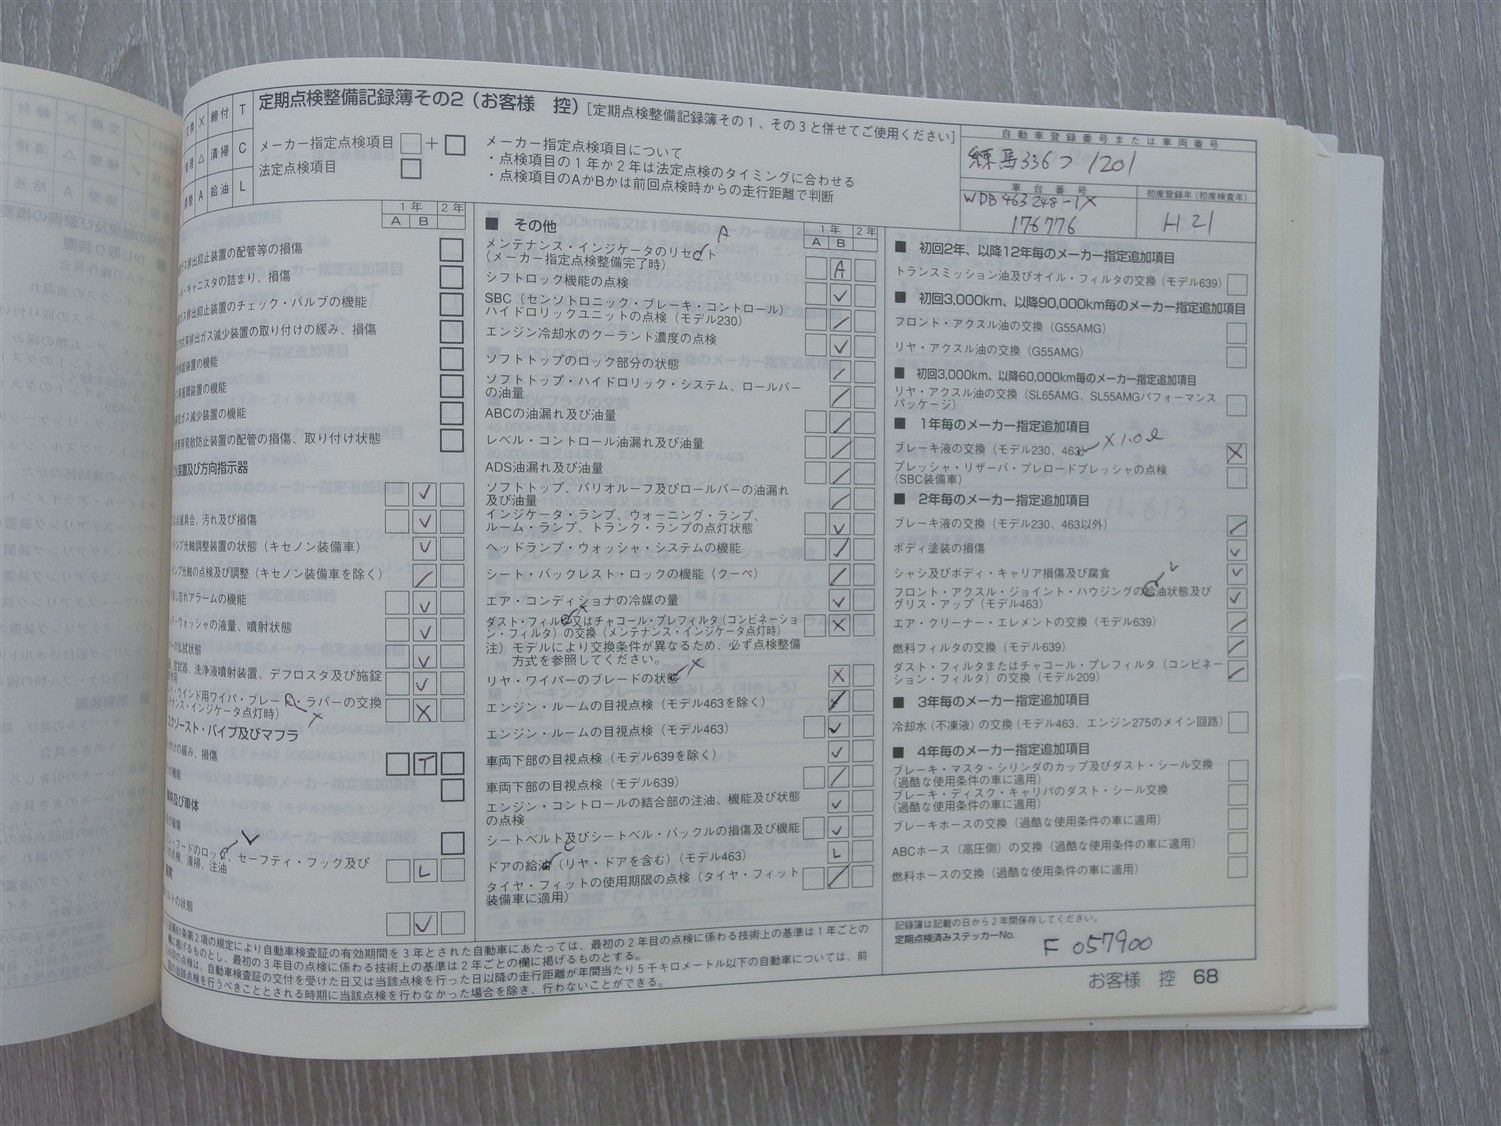 定期点検整備記録簿その2（お客様　控）[定期点検整備記録簿その1、その3と併せてご使用ください]
締付 T
清掃 C
A 給油 L
メーカー指定点検項目 □＋□
法定点検項目 □
メーカー指定点検項目について
・点検項目の1年か2年は法定点検のタイミングに合わせる
・点検項目のAかBかは前回点検時からの走行距離で判断
自動車登録番号または車両番号
練馬336つ1201
車台番号
WDB463248-1X
176776
初度登録年（初度検査年）
H21
1年 2年
A B
ガス排出抑止装置の配管等の損傷
キャニスタの詰まり、損傷
ガス排出抑止装置のチェック・バルブの機能
排出ガス減少装置の取り付けの緩み、損傷
装置の機能
装置の機能
ガス減少装置の機能
発散防止装置の配管の損傷、取り付け状態
装置及び方向指示器
✓
具合、汚れ及び損傷 ✓
ランプ光軸調整装置の状態（キセノン装備車） ✓
ランプ光軸の点検及び調整（キセノン装備車を除く） /
忘れアラームの機能 ✓
ウォッシャの液量、噴射状態 ✓
の払拭状態 ✓
洗浄液噴射装置、デフロスタ及び施錠 ✓
ウインド用ワイパ・ブレード・ラバーの交換
ナンス・インジケータ点灯時） X
エクゾースト・パイプ及びマフラ
付けの緩み、損傷 T
の機能
及び車体
損傷
フードのロック、セーフティ・フック及び
の点検、清掃、注油 L
ベルトの状態 ✓
■ その他
1年 2年
A B
メンテナンス・インジケータのリセット A
（メーカー指定点検整備完了時） A
シフトロック機能の点検 ✓
SBC（センソトロニック・ブレーキ・コントロール）
ハイドロリックユニットの点検（モデル230） /
エンジン冷却水のクーラント濃度の点検 ✓
ソフトトップのロック部分の状態 /
ソフトトップ・ハイドロリック・システム、ロールバー
の油量 /
ABCの油漏れ及び油量 /
レベル・コントロール油漏れ及び油量 /
ADS油漏れ及び油量 /
ソフトトップ、バリオルーフ及びロールバーの油漏れ
及び油量 /
インジケータ・ランプ、ウォーニング・ランプ、
ルーム・ランプ、トランク・ランプの点灯状態 ✓
ヘッドランプ・ウォッシャ・システムの機能 /
シート・バックレスト・ロックの機能（クーペ） /
エア・コンディショナの冷媒の量 ✓
ダスト・フィルタ又はチャコール・プレフィルタ（コンビネーショ
ン・フィルタ）の交換（メンテナンス・インジケータ点灯時） X
注）モデルにより交換条件が異なるため、必ず点検整備
方式を参照してください。
リヤ・ワイパーのブレードの状態 X
エンジン・ルームの目視点検（モデル463を除く） /
エンジン・ルームの目視点検（モデル463） ✓
車両下部の目視点検（モデル639を除く） ✓
車両下部の目視点検（モデル639） /
エンジン・コントロールの結合部の注油、機能及び状態
の点検 ✓
シートベルト及びシートベル・バックルの損傷及び機能 ✓
ドアの給油（リヤ・ドアを含む）（モデル463） L
タイヤ・フィットの使用期限の点検（タイヤ・フィット
装備車に適用） /
■ 初回2年、以降12年毎のメーカー指定追加項目
トランスミッション油及びオイル・フィルタの交換（モデル639）
■ 初回3,000km、以降90,000km毎のメーカー指定追加項目
フロント・アクスル油の交換（G55AMG）
リヤ・アクスル油の交換（G55AMG）
■ 初回3,000km、以降60,000km毎のメーカー指定追加項目
リヤ・アクスル油の交換（SL65AMG、SL55AMGパフォーマンス
パッケージ）
■ 1年毎のメーカー指定追加項目
ブレーキ液の交換（モデル230、463） X1.0ℓ X
プレッシャ・リザーバ・プレロードプレッシャの点検
（SBC装備車）
■ 2年毎のメーカー指定追加項目
ブレーキ液の交換（モデル230、463以外） /
ボディ塗装の損傷 ✓
シャシ及びボディ・キャリア損傷及び腐食 ✓
フロント・アクスル・ジョイント・ハウジングの給油状態及び
グリス・アップ（モデル463） ✓
エア・クリーナー・エレメントの交換（モデル639） /
燃料フィルタの交換（モデル639） /
ダスト・フィルタまたはチャコール・プレフィルタ（コンビネー
ション・フィルタ）の交換（モデル209） /
■ 3年毎のメーカー指定追加項目
冷却水（不凍液）の交換（モデル463、エンジン275のメイン回路）
■ 4年毎のメーカー指定追加項目
ブレーキ・マスタ・シリンダのカップ及びダスト・シール交換
（過酷な使用条件の車に適用）
ブレーキ・ディスク・キャリパのダスト・シール交換
（過酷な使用条件の車に適用）
ブレーキホースの交換（過酷な使用条件の車に適用）
ABCホース（高圧側）の交換（過酷な使用条件の車に適用）
燃料ホースの交換（過酷な使用条件の車に適用）
第61条第2項の規定により自動車検査証の有効期間を3年とされた自動車にあたっては、最初の2年目の点検に係わる技術上の基準は1年ごとの
欄に掲げるものとし、最初の3年目の点検に係わる技術上の基準は2年ごとの欄に掲げるものとする。
の点検は、自動車検査証の交付を受けた日又は当該点検を行った日以降の走行距離が年間当たり5千キロメートル以下の自動車については、前
当該点検を行うべきこととされる時期に当該点検を行わなかった場合を除き、行わないことができる。
記録簿は記載の日から2年間保存してください。
定期点検済みステッカーNo.
F 057900
お客様　控 68